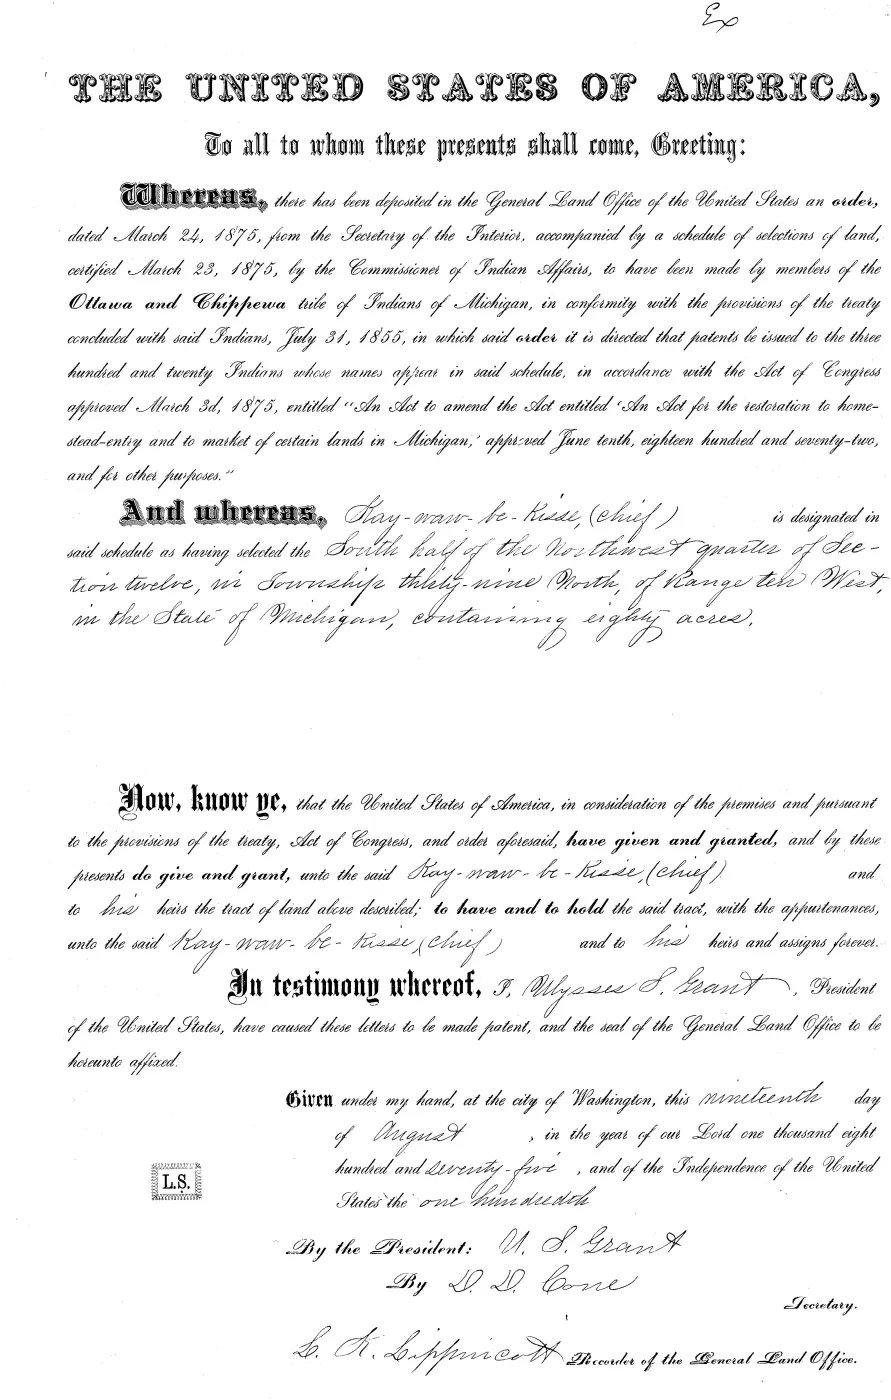 Ex
THE UNITED STATES OF AMERICA,
To all to whom these presents shall come, Greeting:
Whereas, there has been deposited in the General Land Office of the United States an order,
dated March 24, 1875, from the Secretary of the Interior, accompanied by a schedule of selections of land,
certified March 23, 1875, by the Commissioner of Indian Affairs, to have been made by members of the
Ottawa and Chippewa tribe of Indians of Michigan, in conformity with the provisions of the treaty
concluded with said Indians, July 31, 1855, in which said order it is directed that patents be issued to the three
hundred and twenty Indians whose names appear in said schedule, in accordance with the Act of Congress
approved March 3d, 1875, entitled "An Act to amend the Act entitled 'An Act for the restoration to home-
stead-entry and to market of certain lands in Michigan,' approved June tenth, eighteen hundred and seventy-two,
and for other purposes."
And whereas, Kay-waw-be-Kisse, (chief) is designated in
said schedule as having selected the South half of the Northwest quarter of Sec-
tion twelve, in Township thirty-nine North, of Range ten West,
in the State of Michigan, containing eighty acres.
Now, know ye, that the United States of America, in consideration of the premises and pursuant
to the provisions of the treaty, Act of Congress, and order aforesaid, have given and granted, and by these
presents do give and grant, unto the said Kay-waw-be-Kisse, (chief) and
to his heirs the tract of land above described; to have and to hold the said tract, with the appurtenances,
unto the said Kay-waw-be-Kisse, (chief) and to his heirs and assigns forever.
In testimony whereof, I, Ulysses S. Grant, President
of the United States, have caused these letters to be made patent, and the seal of the General Land Office to be
hereunto affixed.
Given under my hand, at the city of Washington, this nineteenth day
of August, in the year of our Lord one thousand eight
hundred and seventy-five, and of the Independence of the United
States the one hundredth
L.S.
By the President: U. S. Grant
By D. D. Cone
Secretary.
L. K. Lippincott Recorder of the General Land Office.